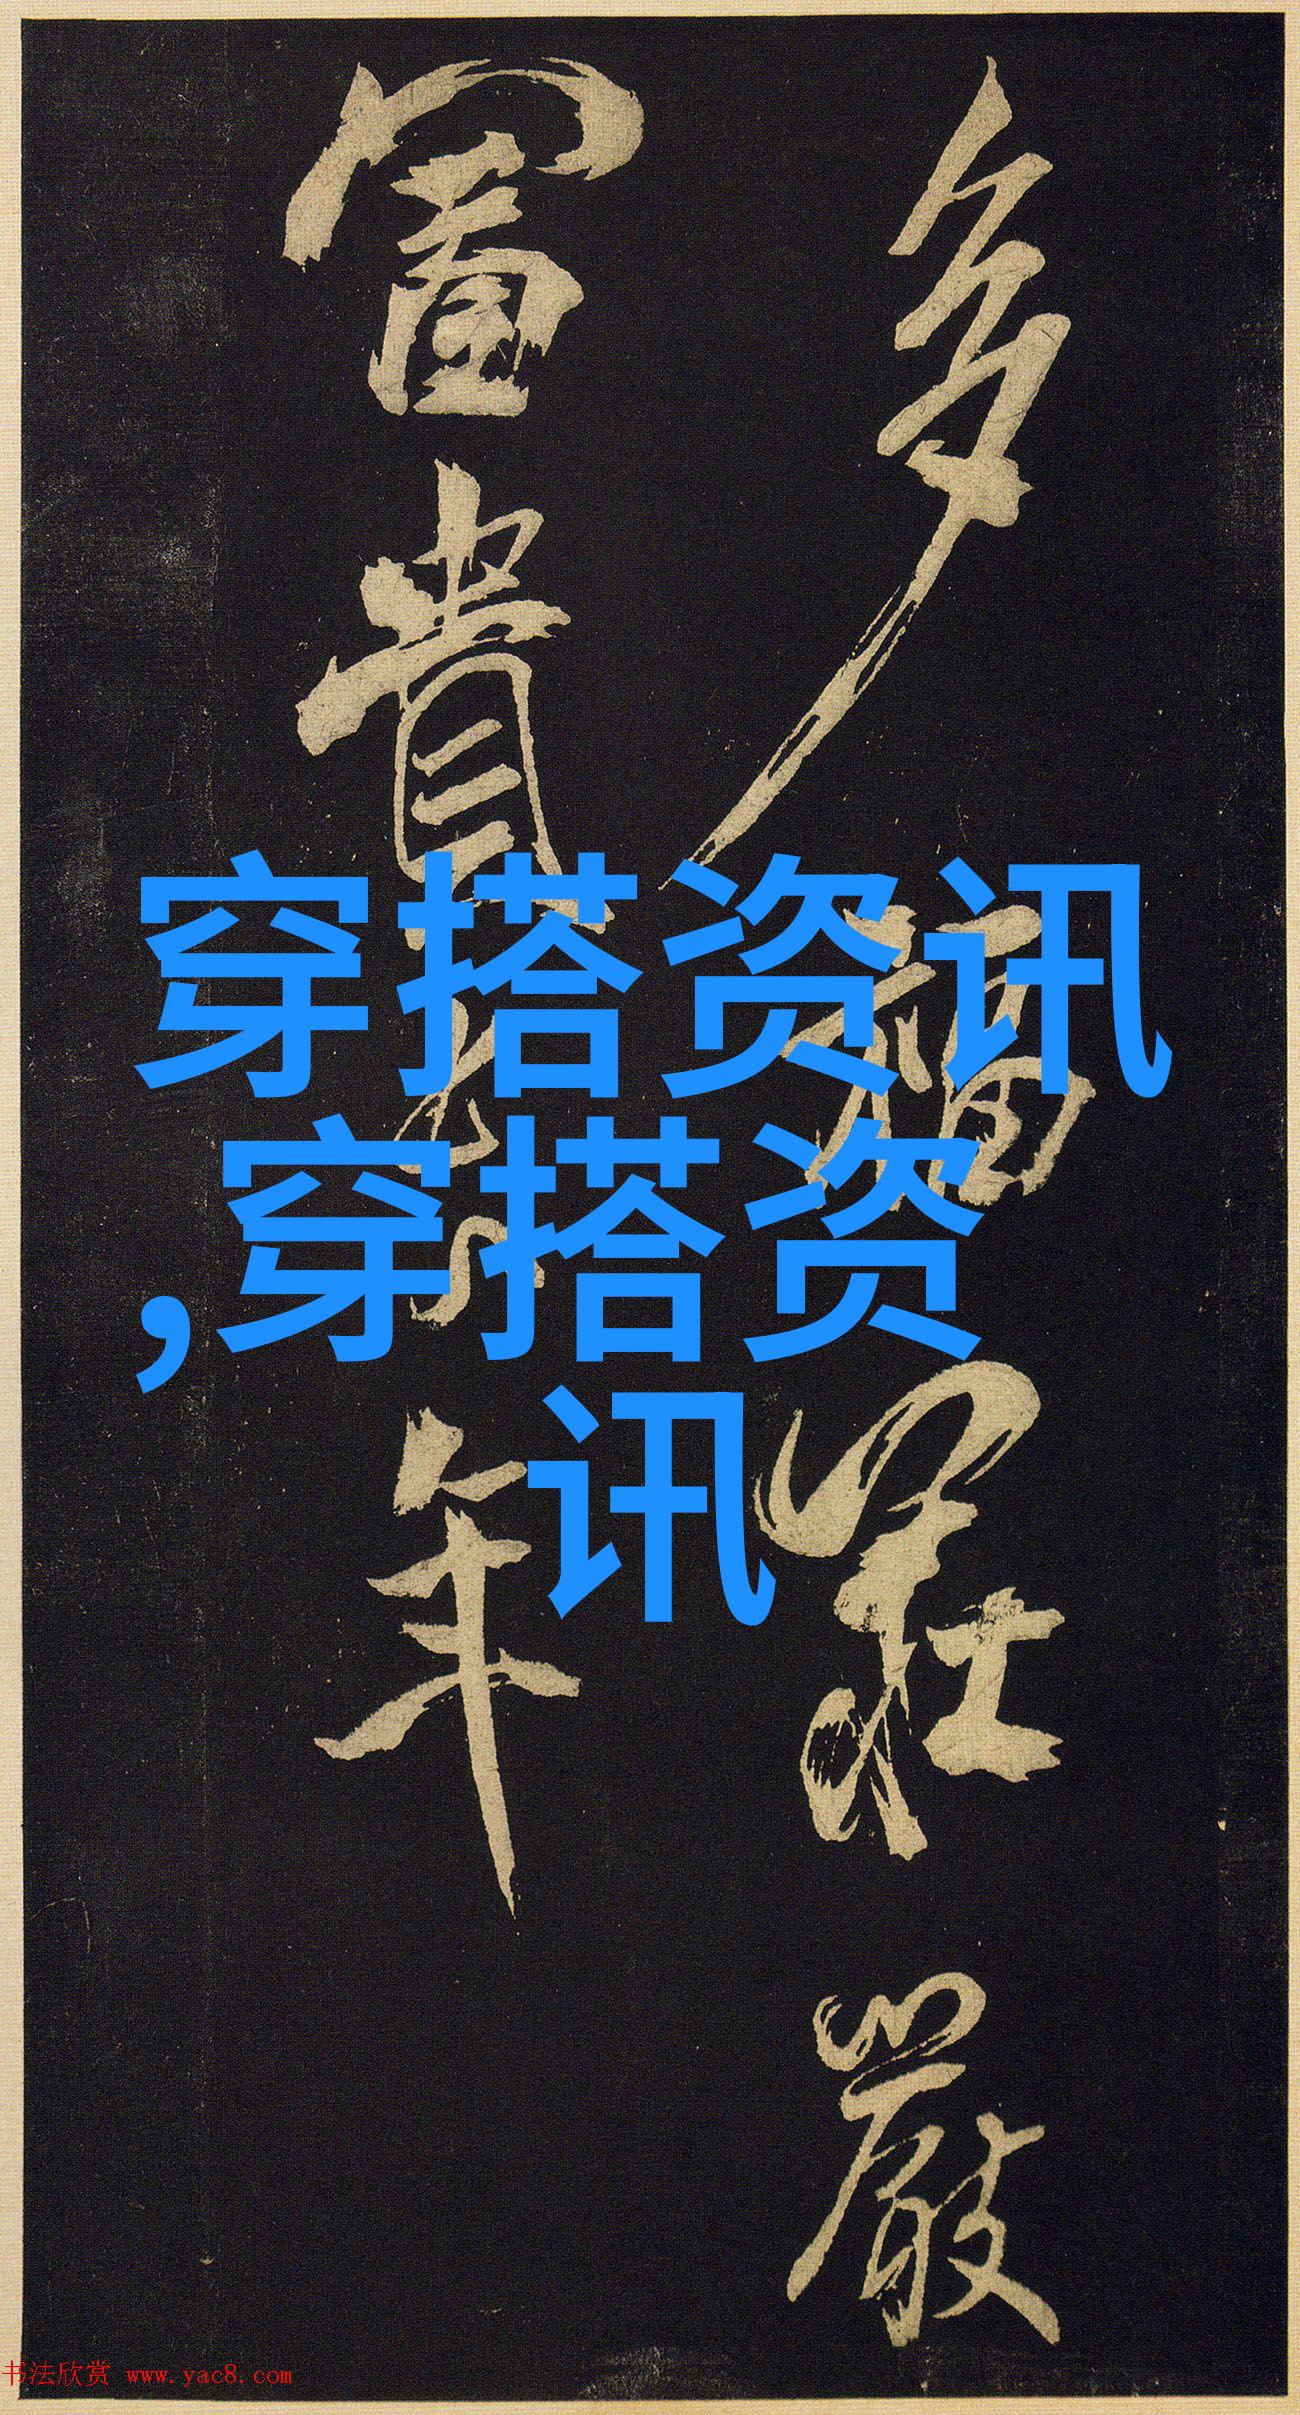 多福莊嚴
富貴年
穿搭资讯
,穿搭资
讯
书法欣赏 www.yac8.com